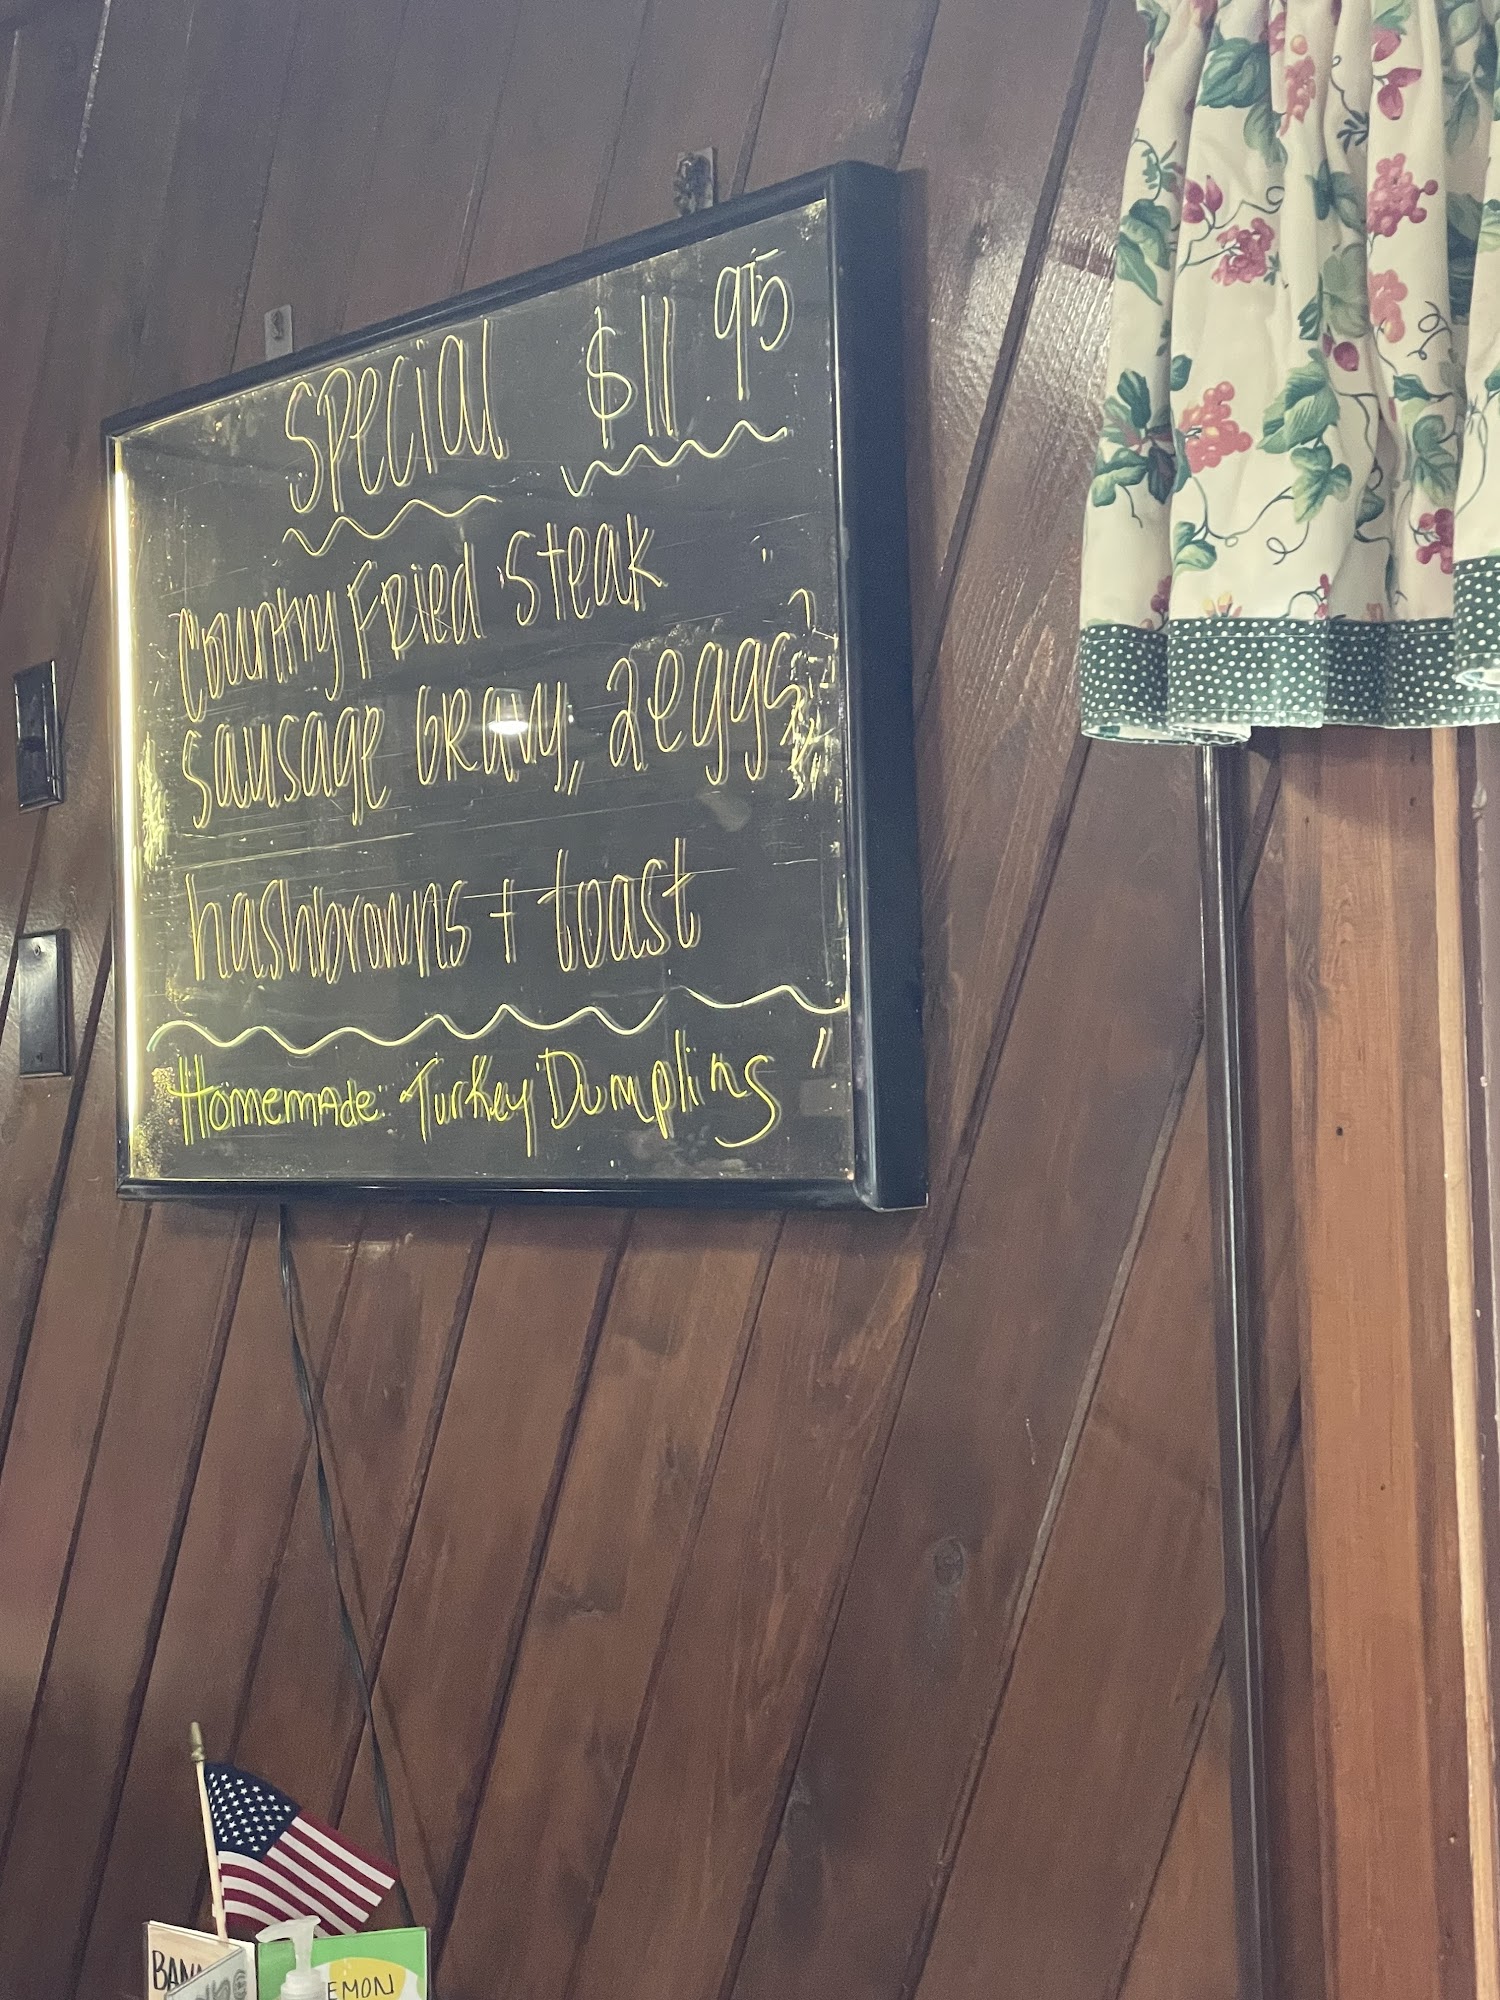 special $11 95
country Fried steak
sausage GRavy, 2 eggs
hashbrowns + toast
Homemade Turkey Dumplings
EMON